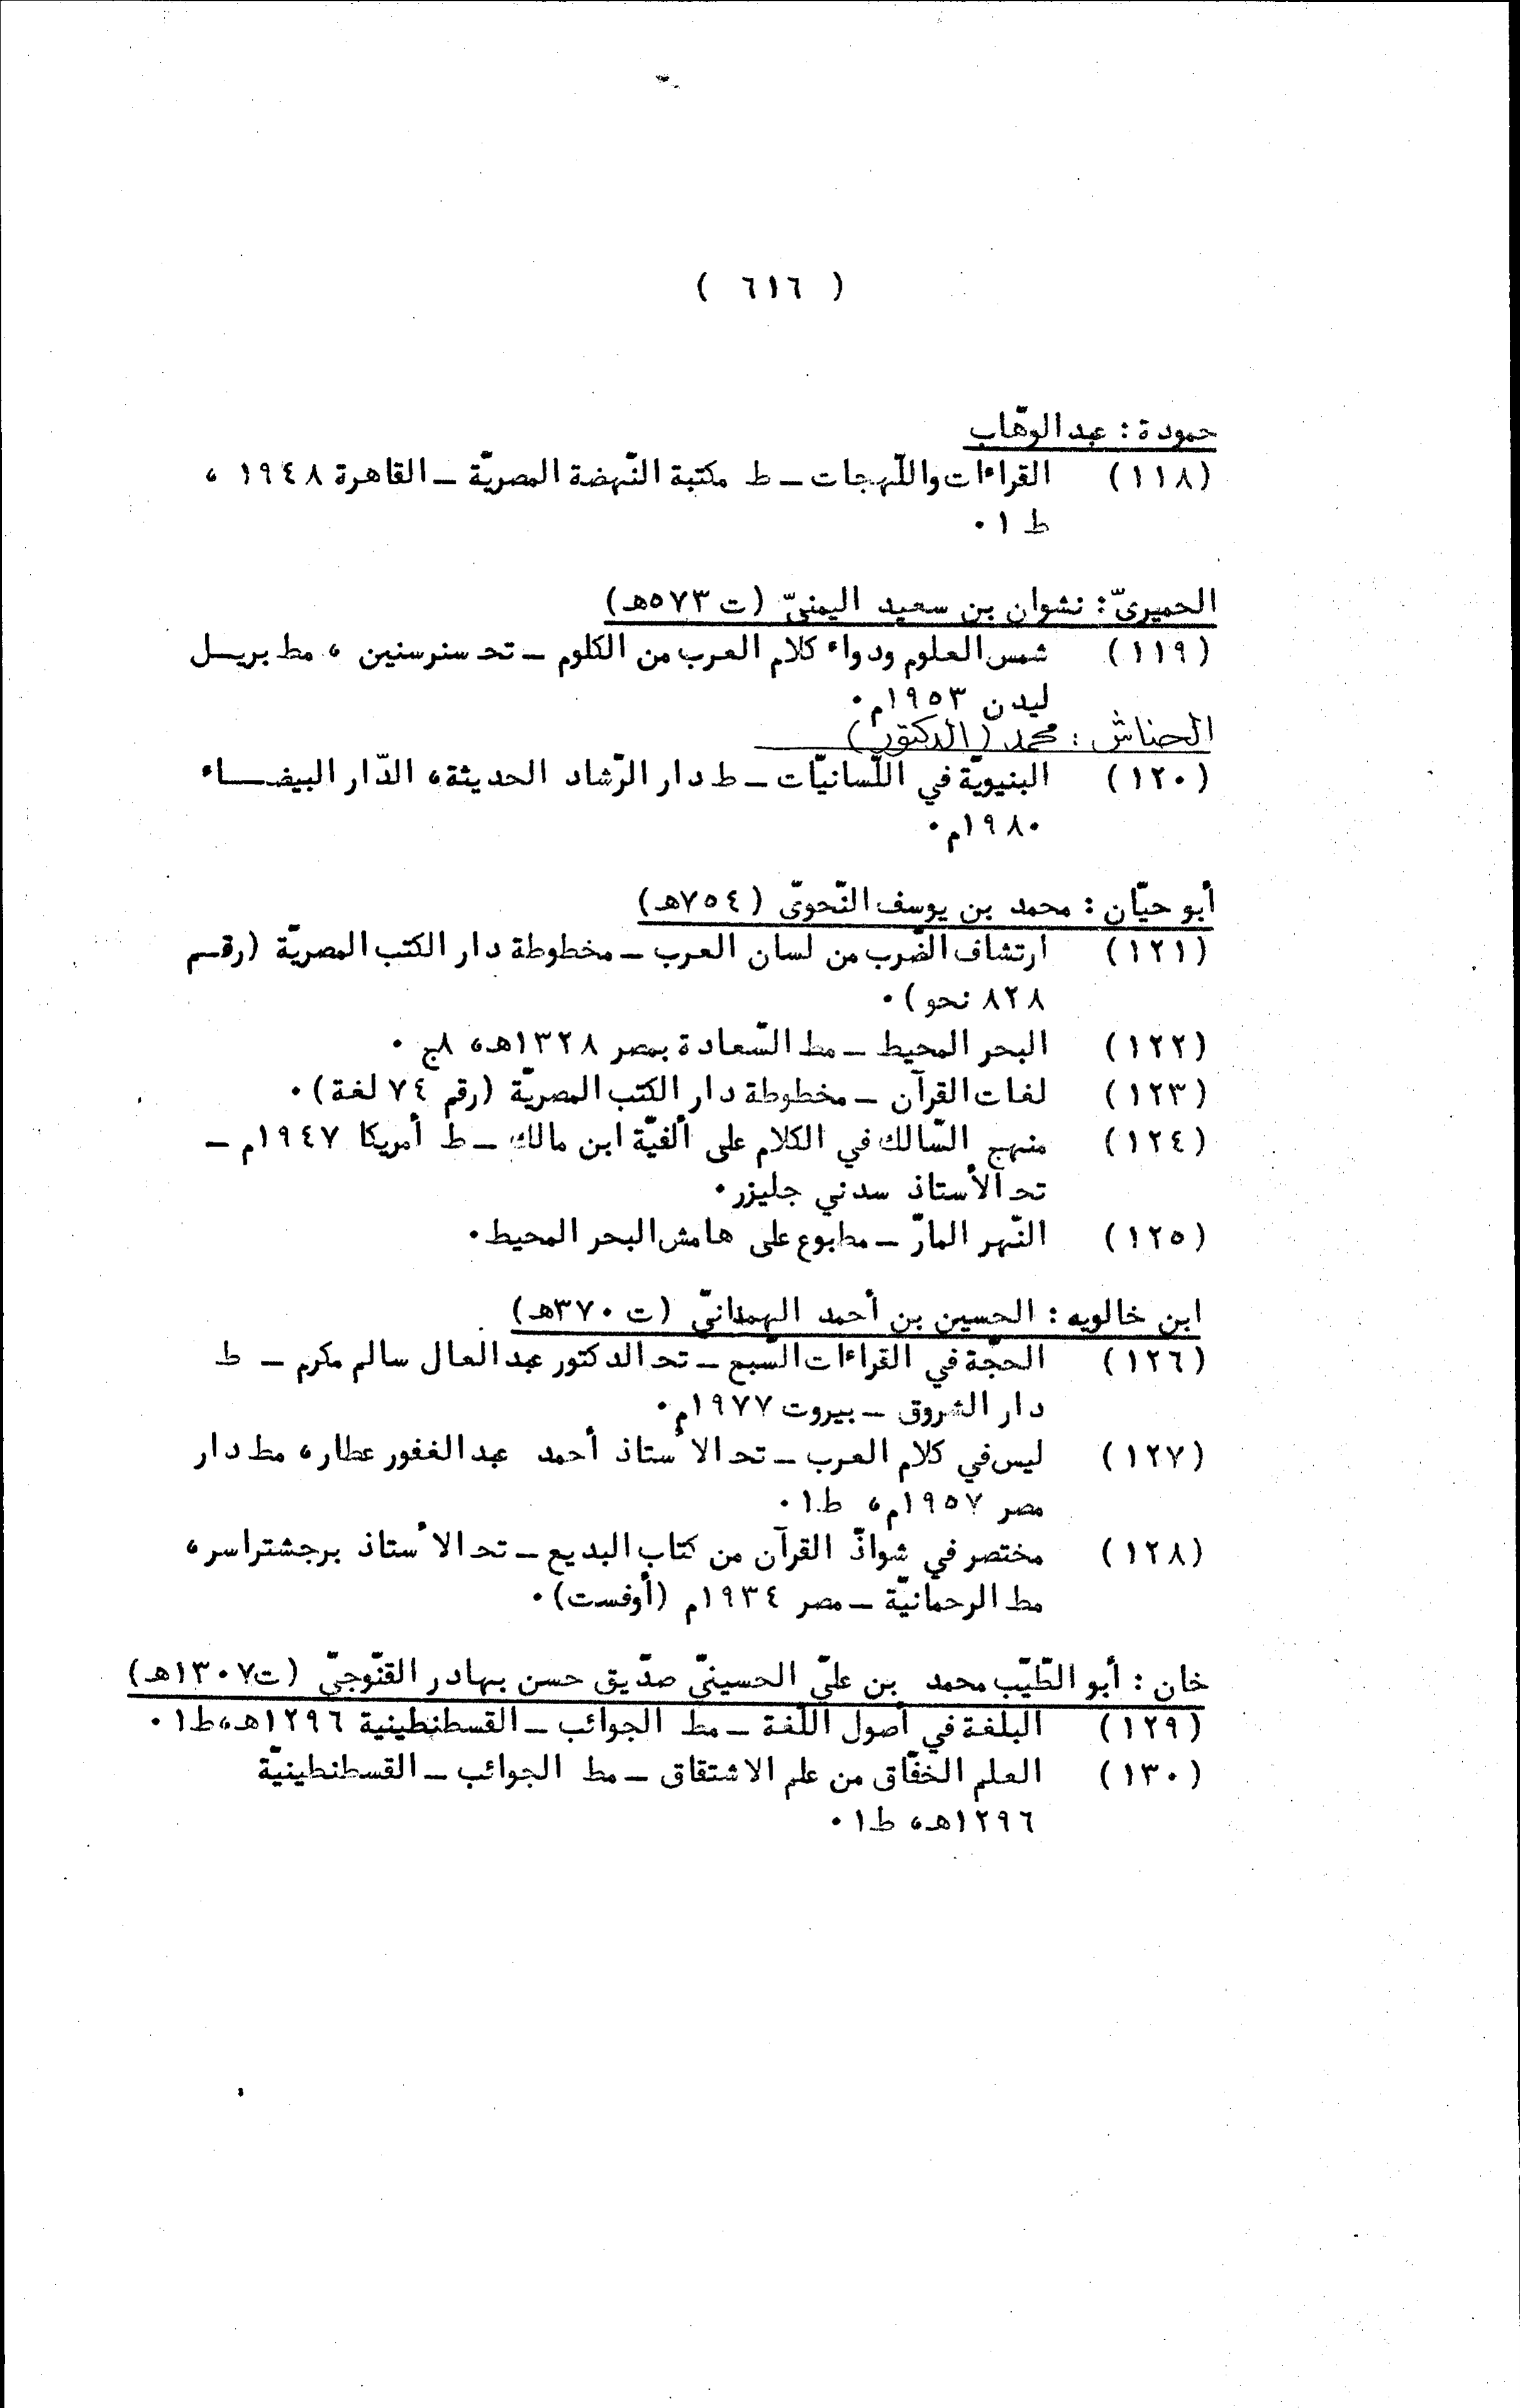 ( ٦١٦ )
حمودة : عبد الوهّاب
(١١٨) القراءات واللّهجات ــ ط مكتبة النّهضة المصريّة ــ القاهرة ١٩٤٨ ،
ط ١ ٠
الحميريّ : نشوان بن سعيد اليمنيّ (ت ٥٧٣هـ)
(١١٩) شمس العلوم ودواء كلام العرب من الكلوم ــ تحـ سنرسنين ، مطـ بريــل
ليدن ١٩٥٣م ٠
الحناش : محمد (الدكتور)
(١٢٠) البنيويّة في اللّسانيّات ــ ط دار الرّشاد الحديثة ، الدّار البيضــاء
١٩٨٠م ٠
أبو حيّان : محمد بن يوسف النّحويّ (٧٥٤هـ)
(١٢١) ارتشاف الضّرب من لسان العرب ــ مخطوطة دار الكتب المصريّة (رقــم
٨٢٨ نحو) ٠
(١٢٢) البحر المحيط ــ مطـ السّعادة بمصر ١٣٢٨هـ ، ٨ج ٠
(١٢٣) لغات القرآن ــ مخطوطة دار الكتب المصريّة (رقم ٧٤ لغة) ٠
(١٢٤) منهج السّالك في الكلام على ألفيّة ابن مالك ــ ط أمريكا ١٩٤٧م ــ
تحـ الأستاذ سدني جليزر ٠
(١٢٥) النّهر المارّ ــ مطبوع على هامش البحر المحيط ٠
ابن خالويه : الحسين بن أحمد الهمذانيّ (ت ٣٧٠هـ)
(١٢٦) الحجّة في القراءات السّبع ــ تحـ الدكتور عبد العال سالم مكرم ــ ط
دار الشروق ــ بيروت ١٩٧٧م ٠
(١٢٧) ليس في كلام العرب ــ تحـ الأستاذ أحمد عبد الغفور عطار ، مطـ دار
مصر ١٩٥٧م ، ط١ ٠
(١٢٨) مختصر في شواذّ القرآن من كتاب البديع ــ تحـ الأستاذ برجشتراسر ،
مطـ الرحمانيّة ــ مصر ١٩٣٤م (أوفست) ٠
خان : أبو الطّيّب محمد بن عليّ الحسينيّ صدّيق حسن بهادر القنّوجيّ (ت١٣٠٧هـ)
(١٢٩) البلغة في أصول اللّغة ــ مطـ الجوائب ــ القسطنطينية ١٢٩٦هـ ، ط١ ٠
(١٣٠) العلم الخفّاق من علم الاشتقاق ــ مطـ الجوائب ــ القسطنطينيّة
١٢٩٦هـ ، ط١ ٠